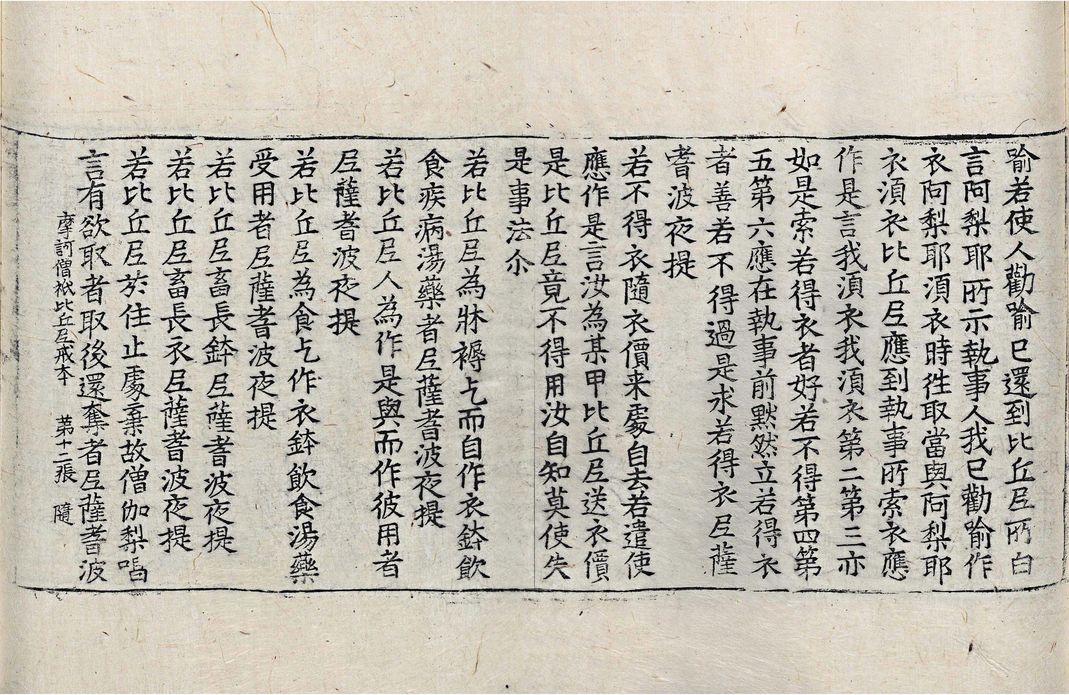 喻若使人勸喻已還到比丘尼所白
言阿梨耶所示執事人我已勸喻作
衣阿梨耶須衣時徃取當與阿梨耶
衣須衣比丘尼應到執事所索衣應
作是言我須衣我須衣第二第三亦
如是索若得衣者好若不得第四第
五第六應在執事前默然立若得衣
者善若不得過是求若得衣尼薩
耆波夜提
若不得衣隨衣價来處自去若遣使
應作是言汝為某甲比丘尼送衣價
是比丘尼竟不得用汝自知莫使失
是事法尒
若比丘尼為牀褥乞而自作衣鉢飲
食疾病湯藥者尼薩耆波夜提
若比丘尼人為作是與而作彼用者
尼薩耆波夜提
若比丘尼為食乞作衣鉢飲食湯藥
受用者尼薩耆波夜提
若比丘尼畜長鉢尼薩耆波夜提
若比丘尼畜長衣尼薩耆波夜提
若比丘尼於住止處棄故僧伽梨唱
言有欲取者取後還奪者尼薩耆波
摩訶僧祇比丘尼戒本 第十二張 隨